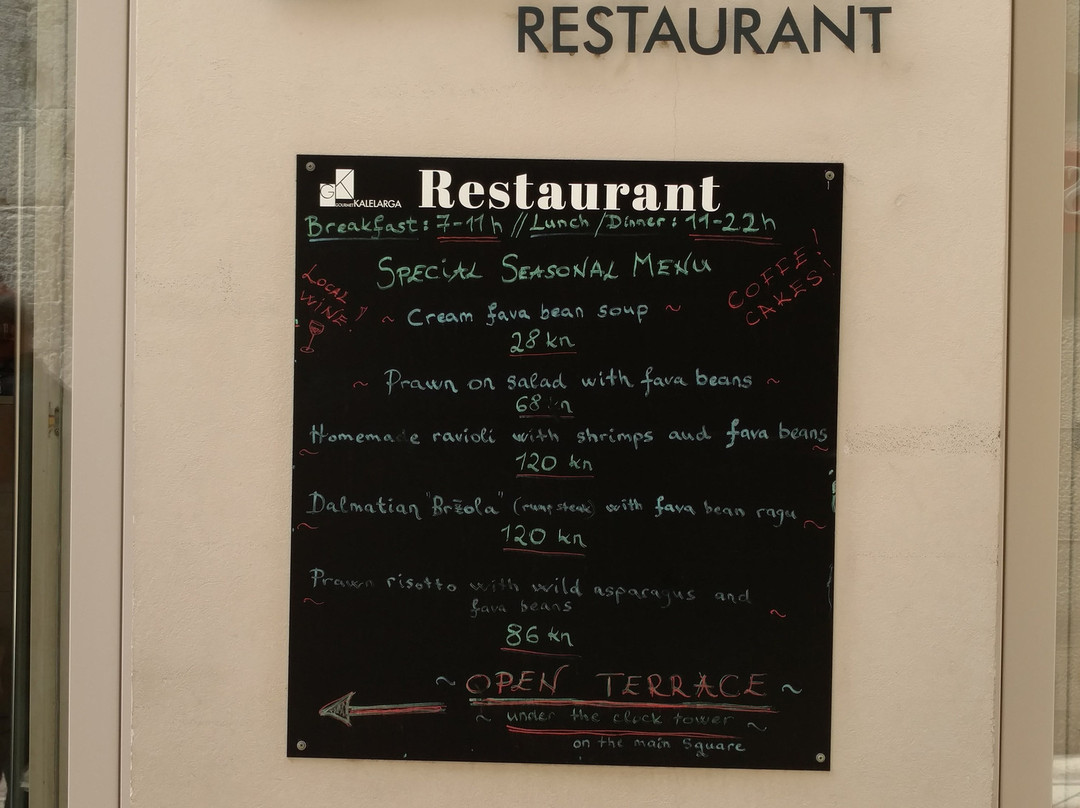 RESTAURANT
GK
GOURMET KALELARGA
Restaurant
Breakfast: 7-11h // Lunch / Dinner: 11-22h
SPECIAL SEASONAL MENU
LOCAL
WINE!
COFFE!
CAKES!
~ Cream fava bean soup ~
28 kn
~ Prawn on salad with fava beans ~
68 kn
Homemade ravioli with shrimps and fava beans
120 kn
Dalmatian "Bržola" (rump steak) with fava bean ragu
120 kn
Prawn risotto with wild asparagus and
fava beans
86 kn
~ OPEN TERRACE ~
~ under the clock tower ~
on the main square